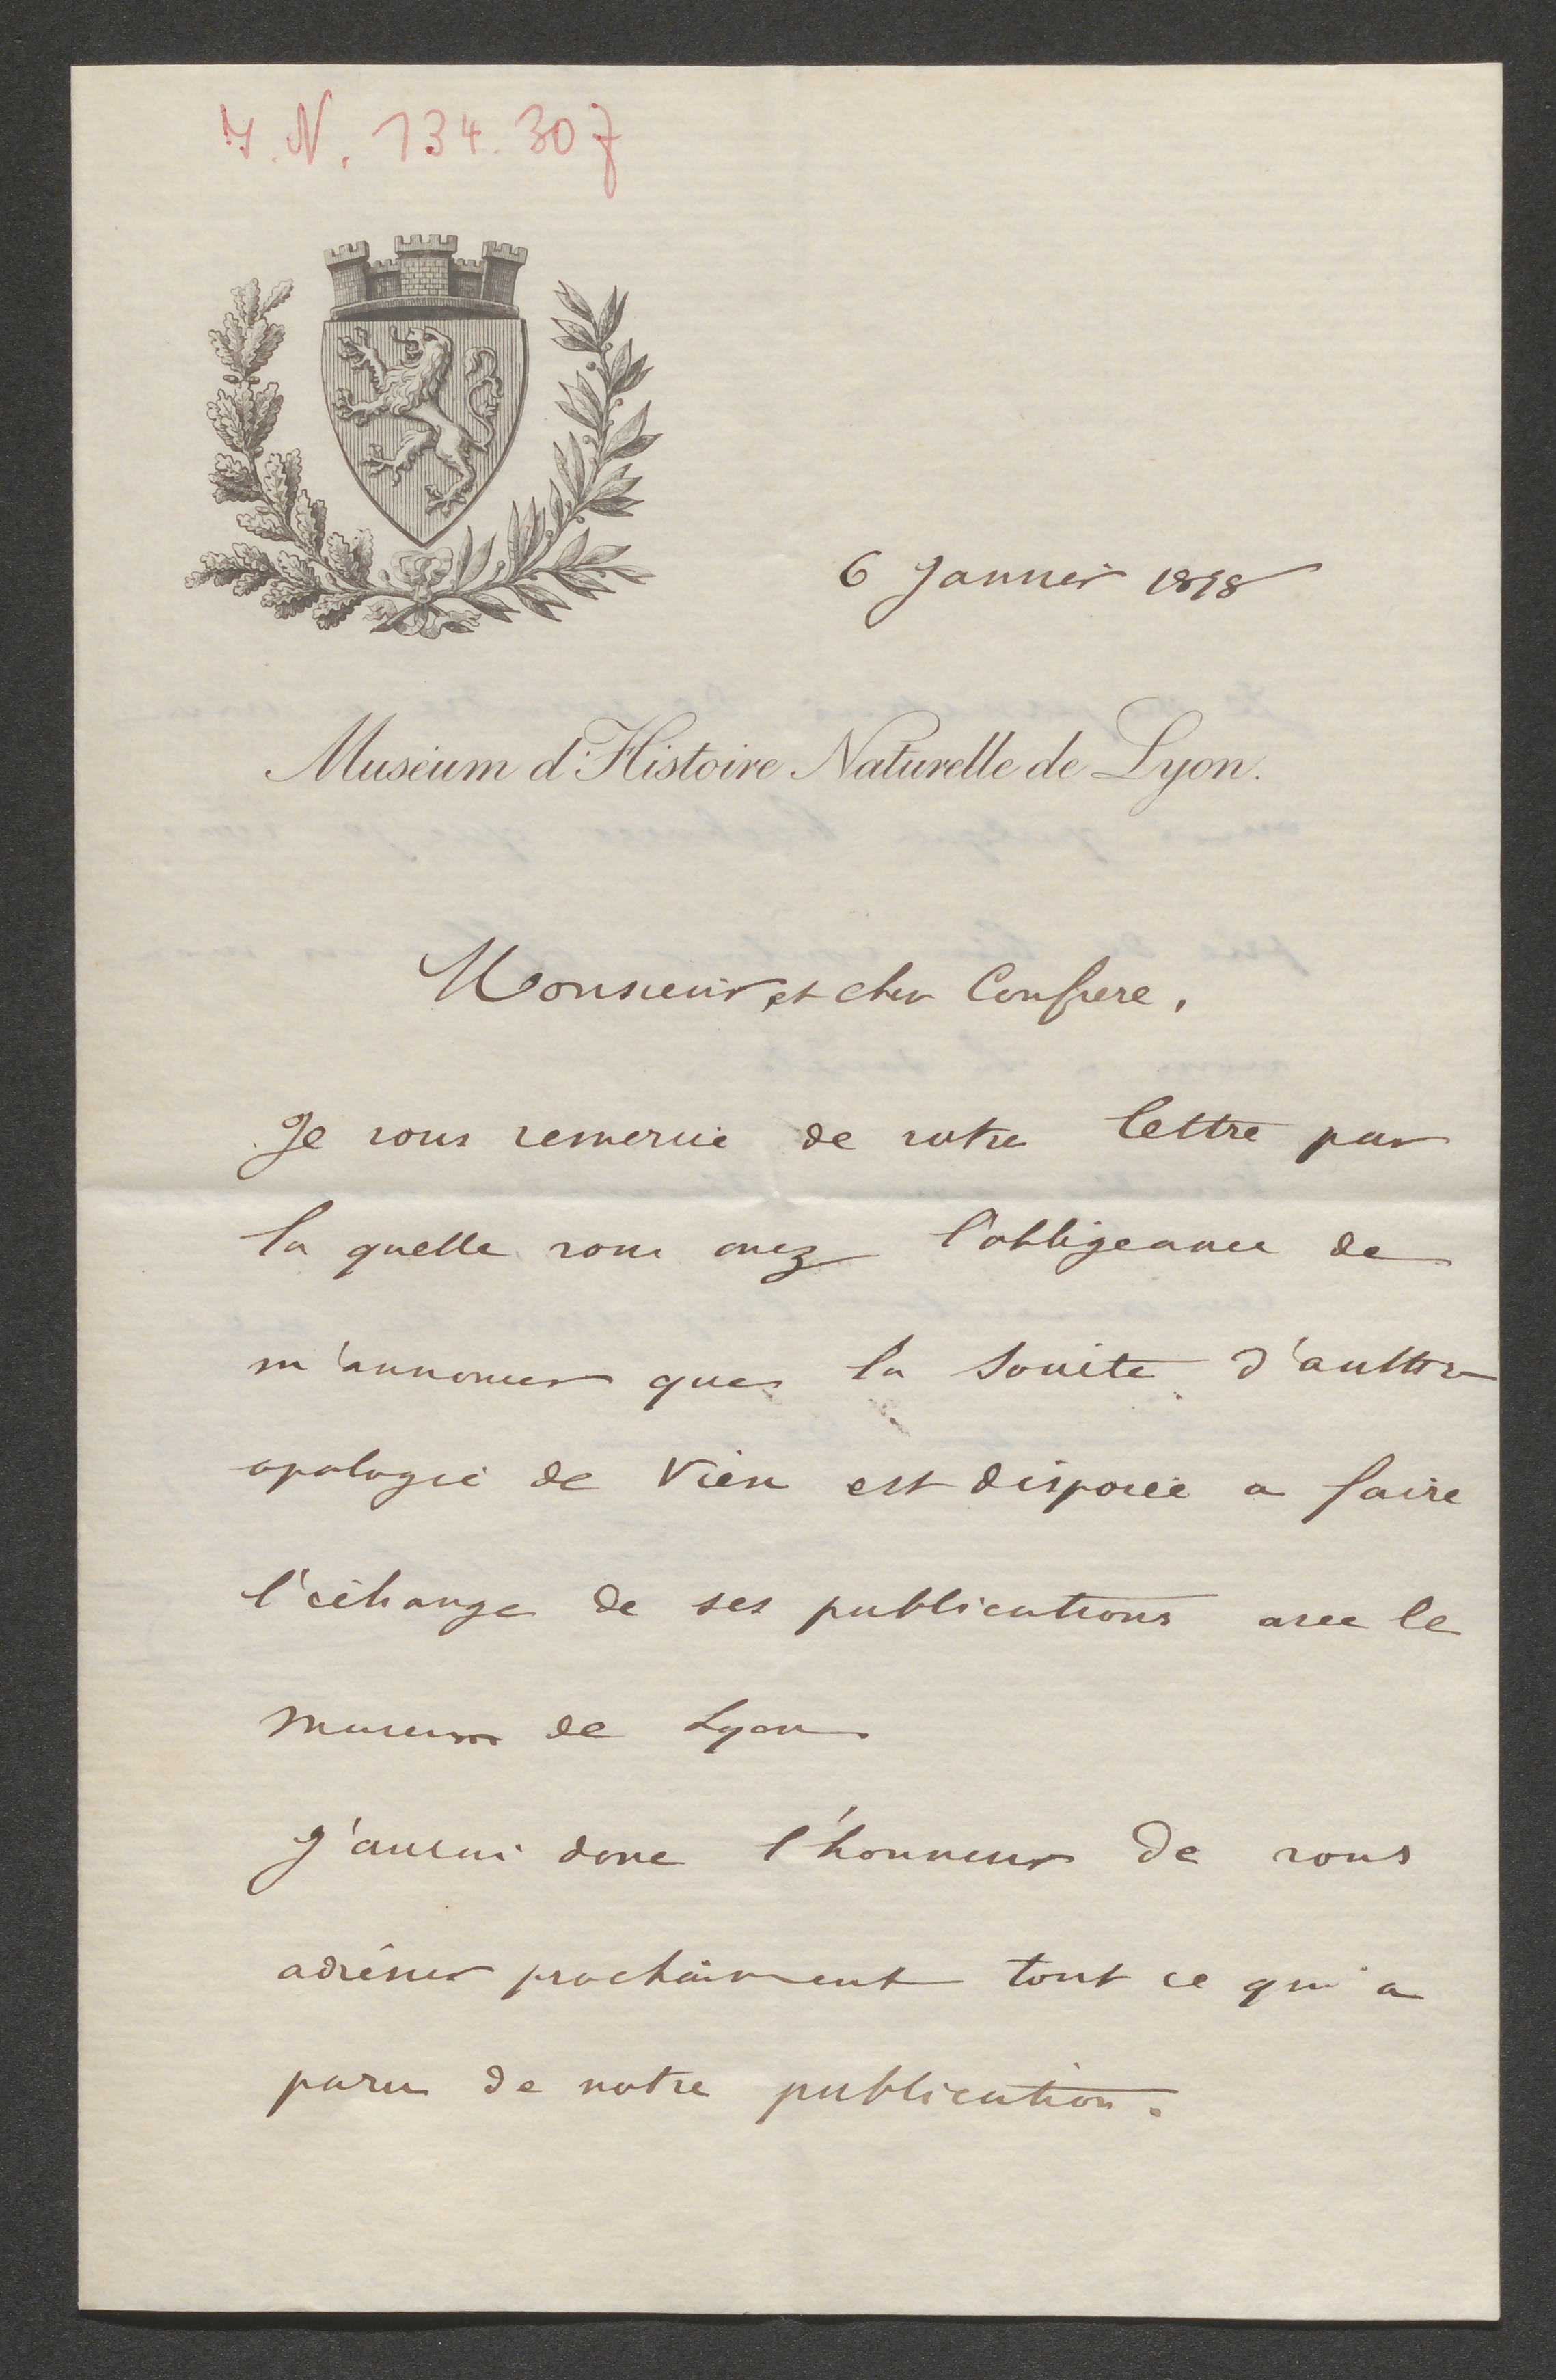 I. N. 134.307
6 Janvier 1878
Museium d'Histoire Naturelle de Lyon.
Monsieur et cher Confrere,
Je vous remercie de votre lettre par
la quelle vous avez l'obligeance de
m'annoncer que la Société d'anthr
opologie de Vien est disposée a faire
l'échange de ses publications avec le
museum de Lyon
J'aurai donc l'honneur de vous
adrésser prochainement tout ce qui a
paru de notre publication.